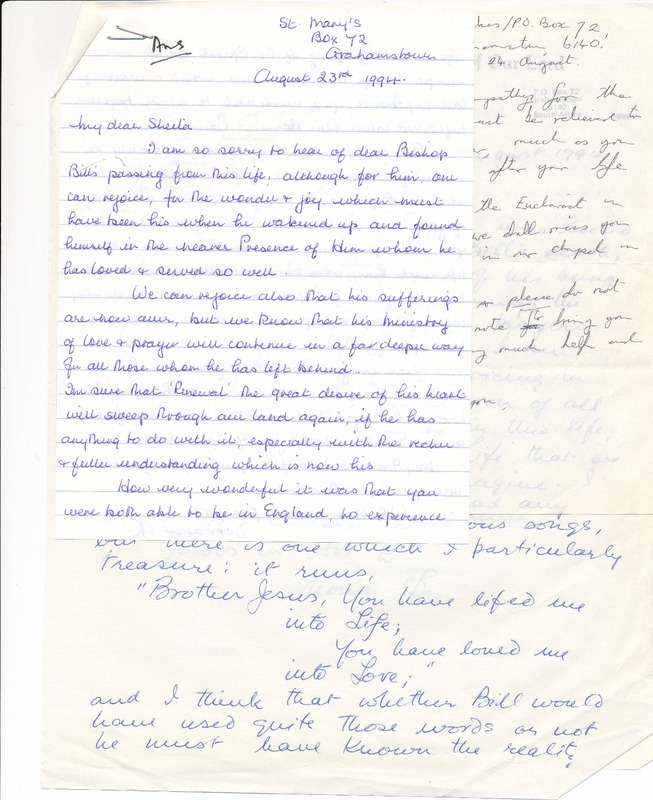 Ans
St. Mary's
Box 72
Grahamstown
August 23rd 1994.
My dear Sheila
I am so sorry to hear of dear Bishop
Bill's passing from this life, although for him, one
can rejoice, for the wonder & joy which must
have been his when he wakened up and found
himself in the nearer Presence of Him whom he
has loved & served so well.
We can rejoice also that his sufferings
are now over, but we know that his ministry
of love & prayer will continue in a far deeper way
for all those whom he has left behind.
I'm sure that 'Renewal' the great desire of his heart
will sweep through our land again, if he has
anything to do with it, especially with the richer
& fuller understanding which is now his
How very wonderful it was that you
were both able to be in England, to experience
/P.O. Box 72
6140.
24 August.
for the
must be relieved to
much as you
after your life
the Enclosest in
we shall miss you
in our chapel on
so please do not
note to bring you
much help and
you,
songs,
but there is one which I particularly
treasure: it runs,
"Brother Jesus, You have lifed me
into Life;
You have loved me
into Love;"
and I think that whether Bill would
have used quite those words or not
he must have known the reality